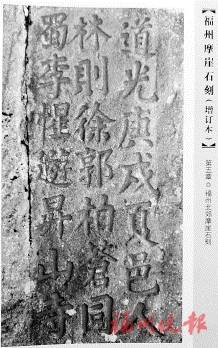 道光庚戌夏邑人
林則徐郭柏蒼同
蜀李惺遊昇山寺
【福州摩崖石刻（增订本）】
第五章 ○ 福州北郊摩崖石刻
福州晚报